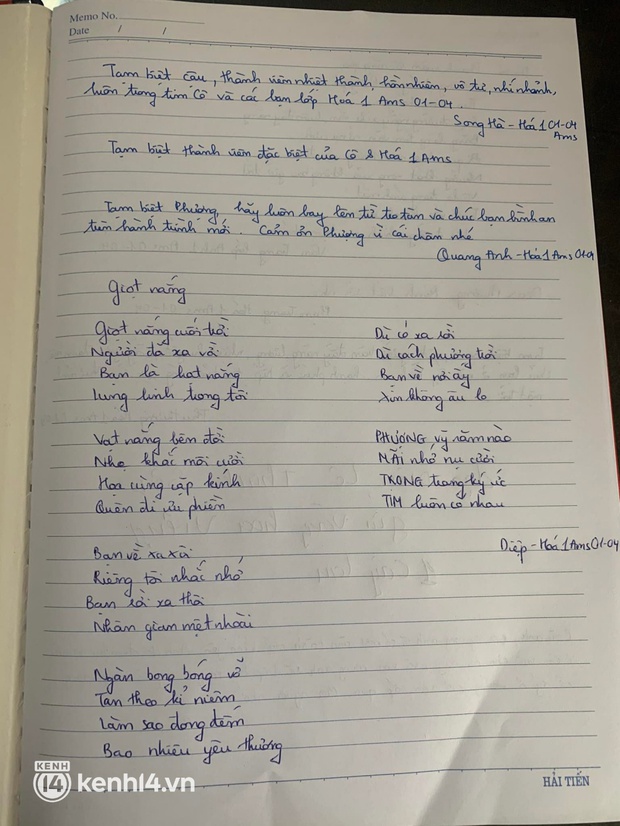 Memo No.
Date / /
Tạm biệt cậu, thành viên nhiệt thành, hồn nhiên, vô tư, nhí nhảnh,
luôn trong tim Cô và các bạn lớp Hoá 1 Ams 01-04.
Song Hà - Hoá 1 01-04
Ams
Tạm biệt thành viên đặc biệt của Cô & Hoá 1 Ams
Tạm biệt Phượng, hãy luôn bay lên từ tro tàn và chúc bạn bình an
trên hành trình mới. Cảm ơn Phượng vì cái chăn nhé
Quang Anh - Hoá 1 Ams 01-04
Giọt nắng
Giọt nắng cuối trời
Người đã xa vời
Bạn là hạt nắng
Lung linh trong tôi
Vạt nắng bên đồi
Nhẹ khắc môi cười
Họa cùng cặp kính
Quên đi ưu phiền
Bạn về xa xôi
Riêng tôi nhắc nhớ
Bạn rời xa thôi
Nhân gian mệt nhoài
Ngàn bong bóng vỡ
Tan theo kỉ niệm
Làm sao đong đếm
Bao nhiêu yêu thương
Dù có xa rồi
Dù cách phương trời
Bạn về nơi ấy
Xin không âu lo
PHƯỢNG vỹ năm nào
MÃI nhớ nụ cười
TRONG trang ký ức
TIM luôn có nhau
Diệp - Hoá 1 Ams 01-04
KENH
14 kenh14.vn
HẢI TIẾN